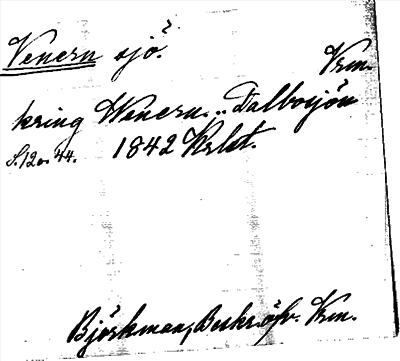 Venern sjö?
Vrm.
kring Wenern... Dalbosjön
S. 12 o. 44. 1842 Krlst.
Björkman, Beskr. öfv. Vrm.